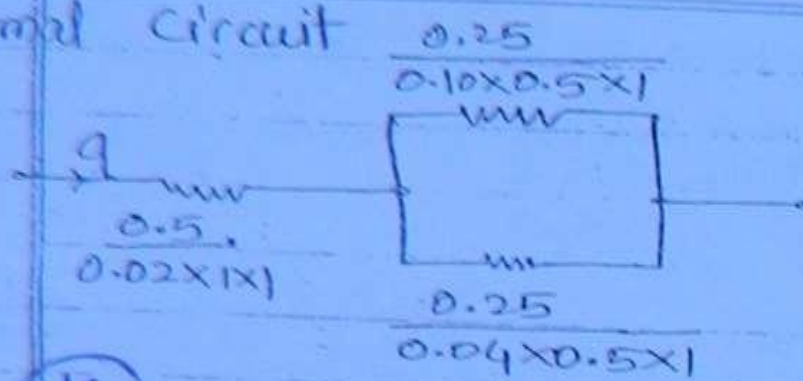 Circuit
0.25
0.10×0.5×1
q
0.5
0.02×1×1
0.25
0.04×0.5×1